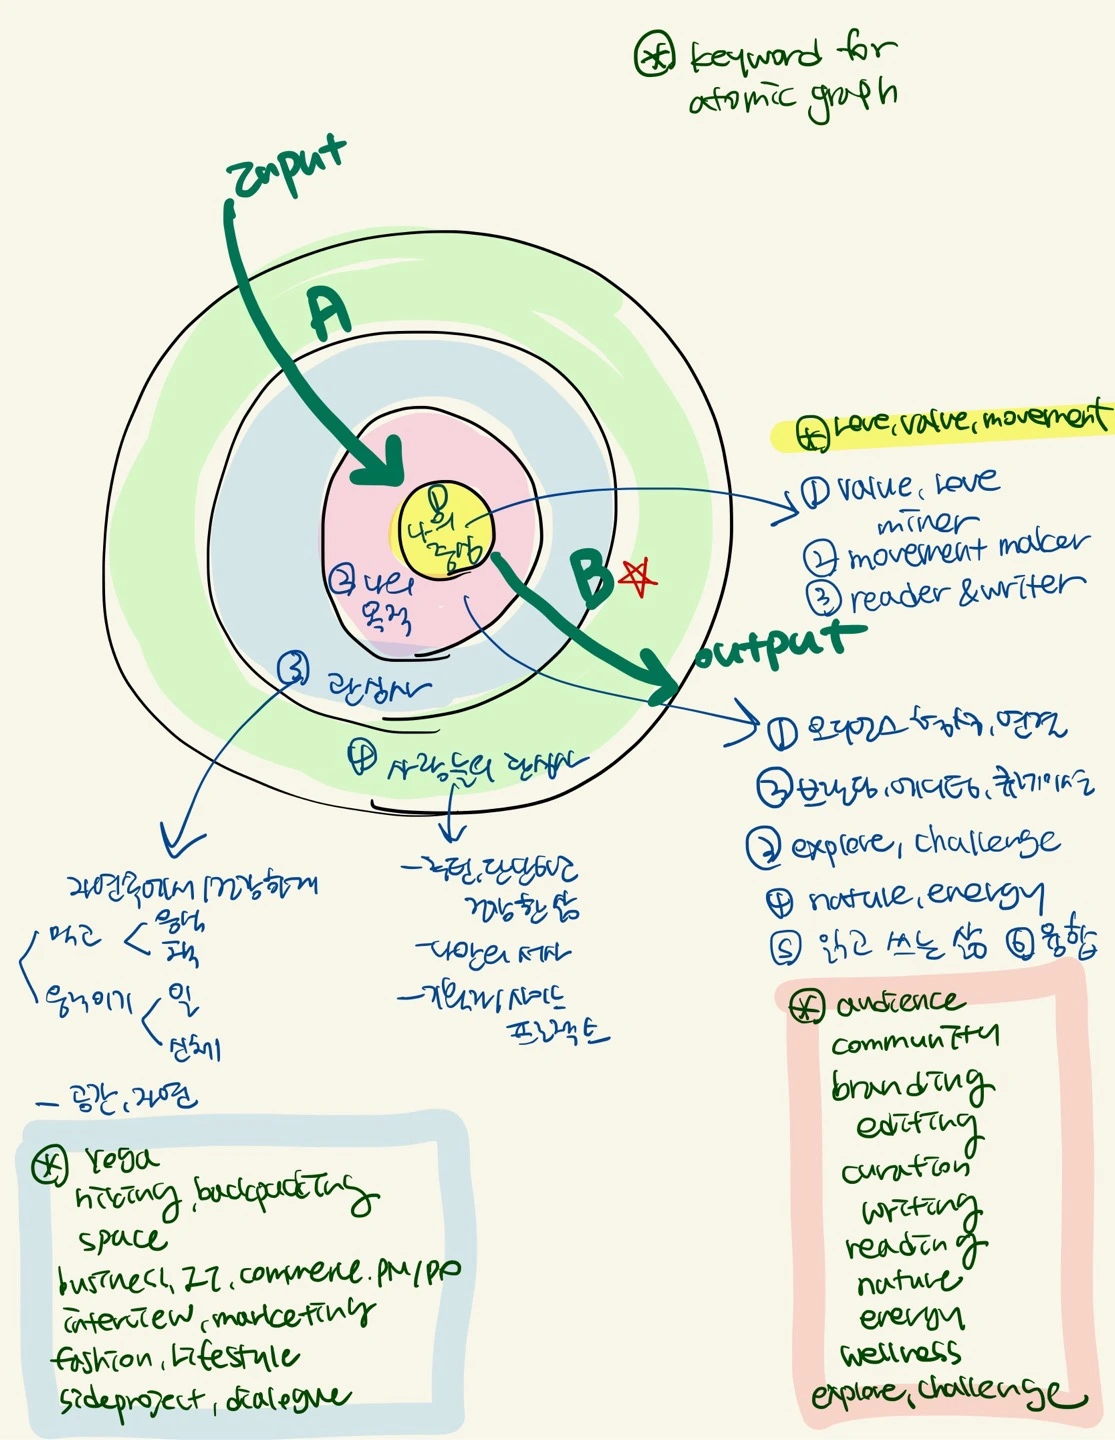 * keyword for
atomic graph
Input
A
①
나의
중심
② 나의
목적
③ 관심사
④ 사람들의 관심사
B
output
* Love, value, movement
① value, love
miner
② movement maker
③ reader & writer
① 오디언스 연결
② 브랜딩, 에디팅, 큐레이션
③ explore, challenge
④ nature, energy
⑤ 읽고 쓰는 삶 ⑥ 융합
자연속에서 건강하게
먹고
음식
책
움직이기
일
신체
- 공간, 자연
건강한 삶
- 다양의 서사
사이드
프로젝트
* Yoga
hiking, backpacking
space
business, IT, commerce. PM/PO
interview, marketing
fashion, lifestyle
sideproject, dialogue
* audience
community
branding
editing
curation
writing
reading
nature
energy
wellness
explore, challenge